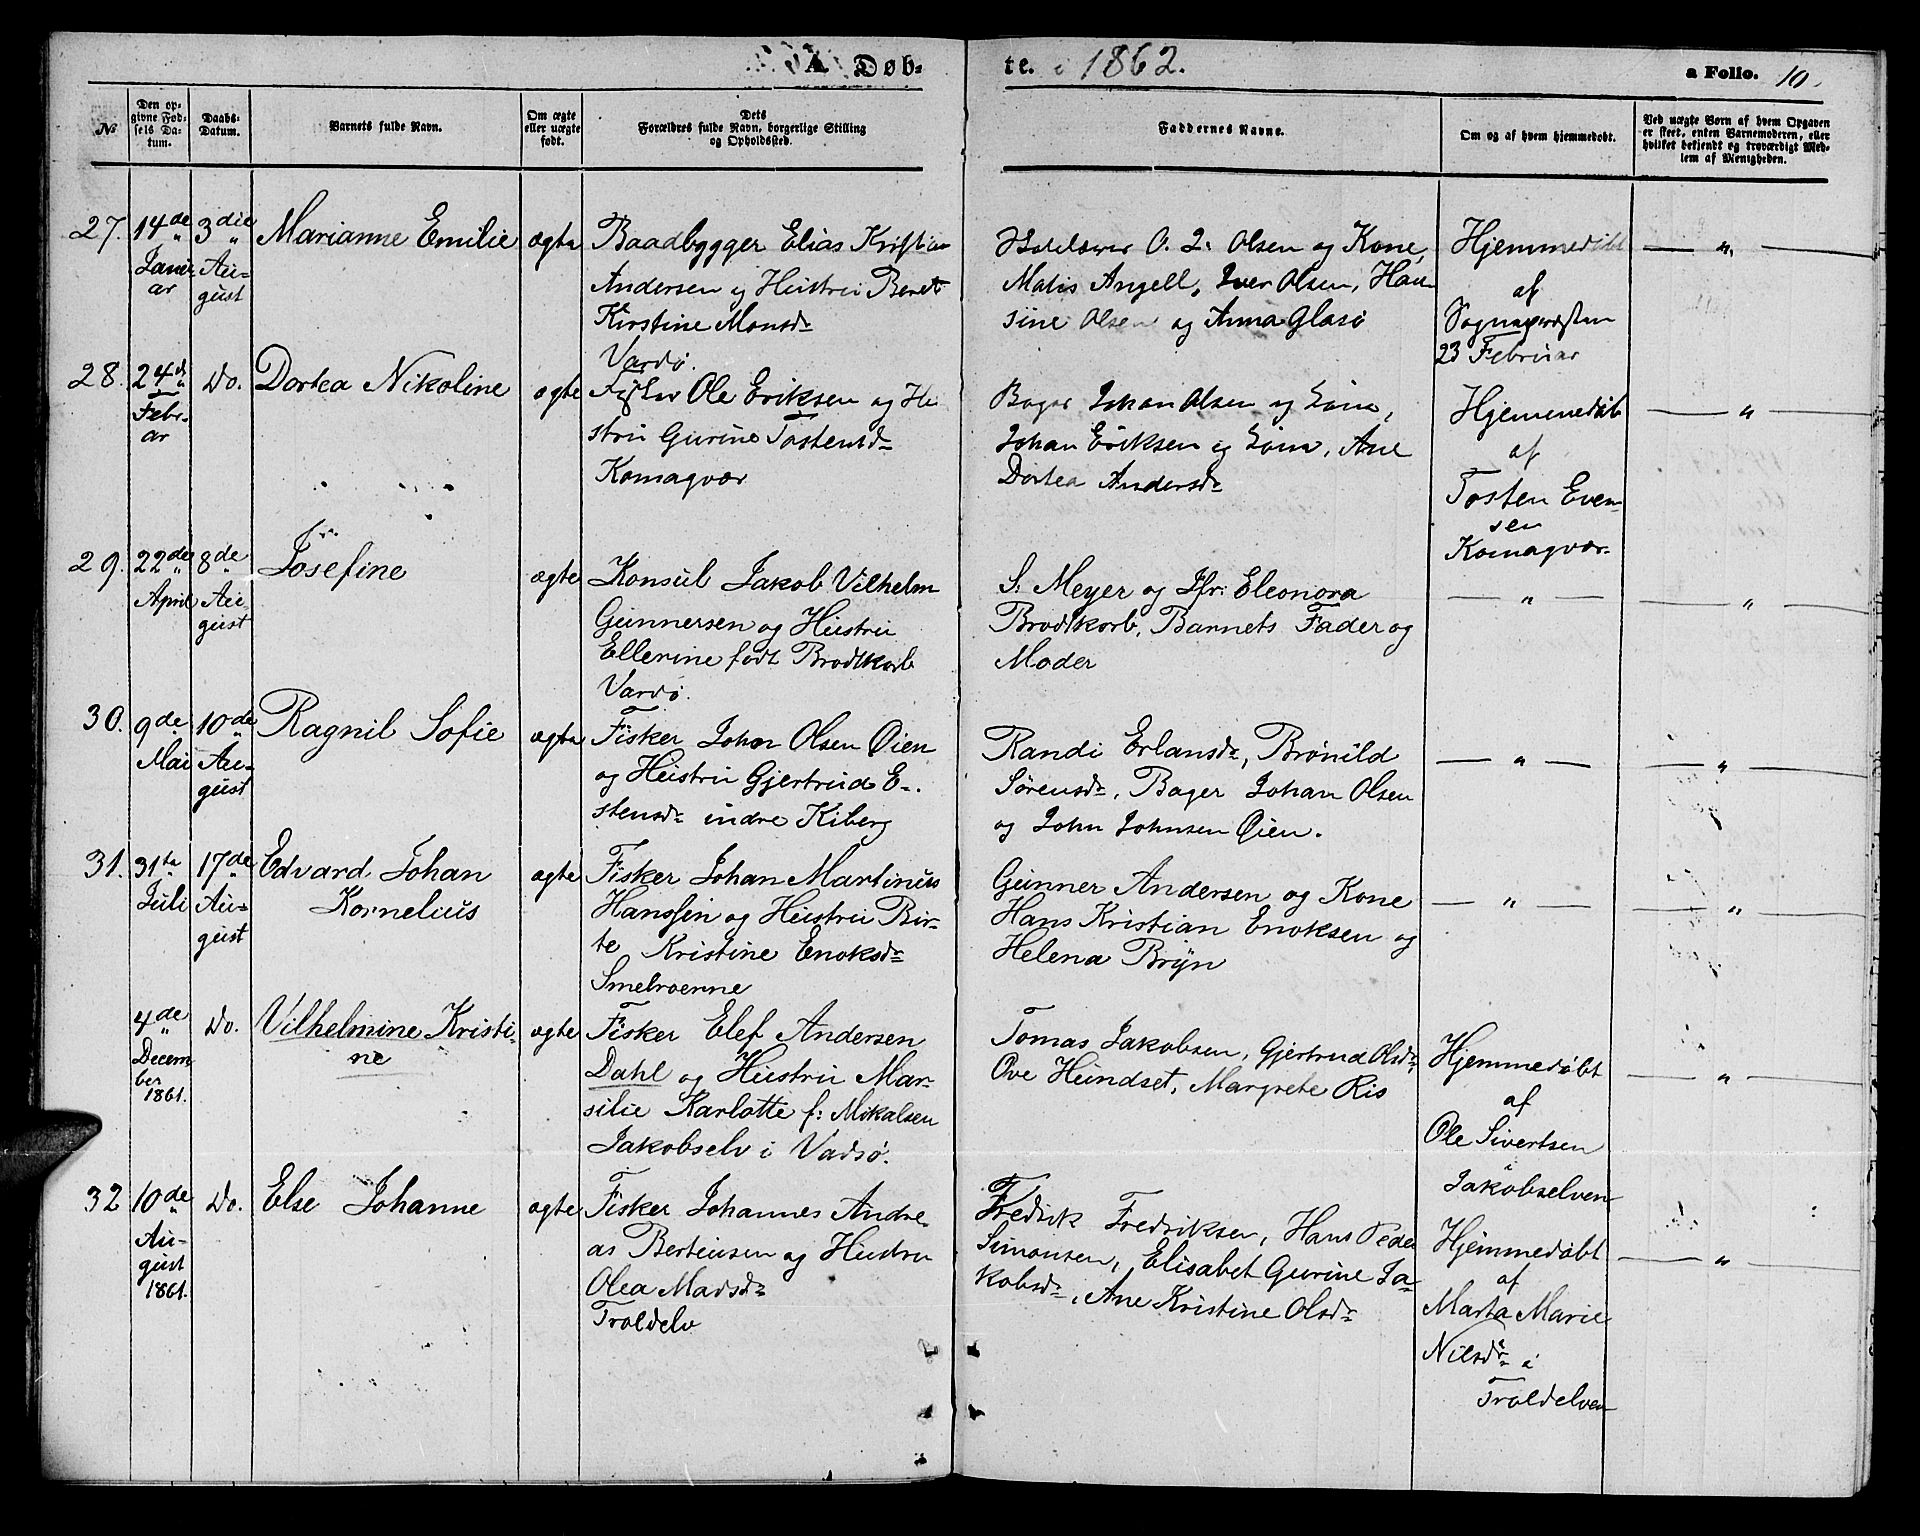 A. Døb-
te. i 1862.
a Folio. 10.
№
Den op-
givne Fød-
sels Da-
tum.
Daabs-
Datum.
Barnets fulde Navn.
Om ægte
eller uægte
født.
Dets
Forældres fulde Navn, borgerlige Stilling
og Opholdssted.
Faddernes Navne.
Om og af hvem hjemmedøbt.
Ved uægte Børn af hvem Opgaven
er skeet, enten Barnemoderen, eller
hvilket bekjendt og troværdigt Med-
lem af Menigheden.
27.
14de
Janu-
ar
3die
Au-
gust
Marianne Emilie
ægte
Baadbygger Elias Kristian
Andersen og Hustru Beret
Kirstine Monsdr
Vardø.
O. L. Olsen og Kone,
Matis Angell, Iver Olsen, Han-
sine Olsen og Anna Glasø
Hjemmedøbt
af
Sognepræsten
23 Februar
— " —
28.
24d
Febr-
ar
Do.
Dortea Nikoline
ægte
Fisker Ole Eriksen og Hu
stru Gurine Tostensdr
Komagvær
Bager Johan Olsen og Kone,
Johan Eriksen og Kone, Ane
Dortea Andersdr
Hjemmedøbt
af
Tosten Even-
sen
Komagvær
— " —
29.
22de
April
8de
Au-
gust
Josefine
ægte
Konsul Jakob Vilhelm
Gunnersen og Hustru
Ellerine født Brodtkorb
Vardø.
S. Meyer og Jfr: Eleonora
Brodtkorb, Barnets Fader og
Moder
— " —
— " —
30.
9de
Mai
10de
Au-
gust
Ragnil Sofie
ægte
Fisker John Olsen Øien
og Hustru Gjertrud E-
stensdr indre Kiberg
Randi Erlansdr, Brønild
Sørensdr, Bager Johan Olsen
og John Johnsen Øien.
— " —
— " —
31.
31te
Juli
17de
Au-
gust
Edvard Johan
Kornelius
ægte
Fisker Johan Martinus
Hanssen og Hustru Bir-
te Kristine Enoksdr
Smelroerne
Gunner Andersen og Kone
Hans Kristian Enoksen og
Helena Bryn
— " —
— " —
4de
Decem
ber
1861.
Do.
Vilhelmine Kristi-
ne
ægte
Fisker Elef Andersen
Dahl og Hustru Mar-
silie Karlotte f: Mikalsen
Jakobselv i Vadsø.
Tomas Jakobsen, Gjertrud Olsdr,
Ove Hundset, Margrete Ris
Hjemmedøbt
af
Ole Sivertsen
Jakobselven
— " —
32
10de
Au-
gust
1861.
Do.
Else Johanne
ægte
Fisker Johannes Andre-
as Berteusen og Hustru
Olea Madsdr
Troldelv
Fredrik Fredriksen, Hans Peder
Simonsen, Elisabet Gurine Ja-
kobsdr, Ane Kristine Olsdr
Hjemmedøbt
af
Marta Marie
Nilsdr i
Troldelven
— " —